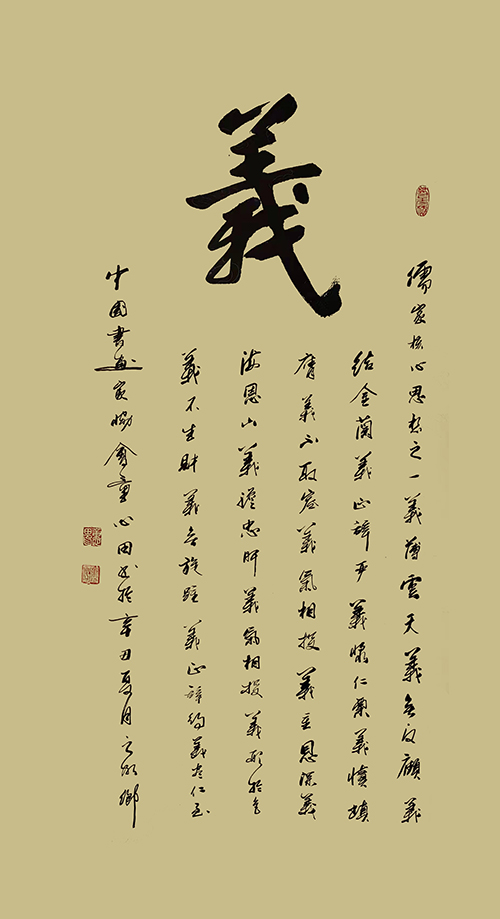 義
儒家核心思想之一義薄雲天義無反顧義
結金蘭義正辭嚴義漿仁粟義憤填
膺義不取容義氣相投義重恩深義
海恩山義膽忠肝義氣相投義形於色
義不生財義無旋踵義正辭約義盡仁至
中國書畫家協會童心田書於辛丑夏月